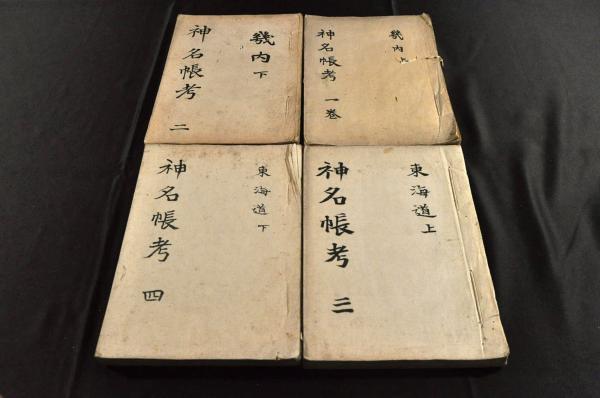 幾内上
神名帳考 一巻
幾内下
神名帳考 二
東海道上
神名帳考 三
東海道下
神名帳考 四